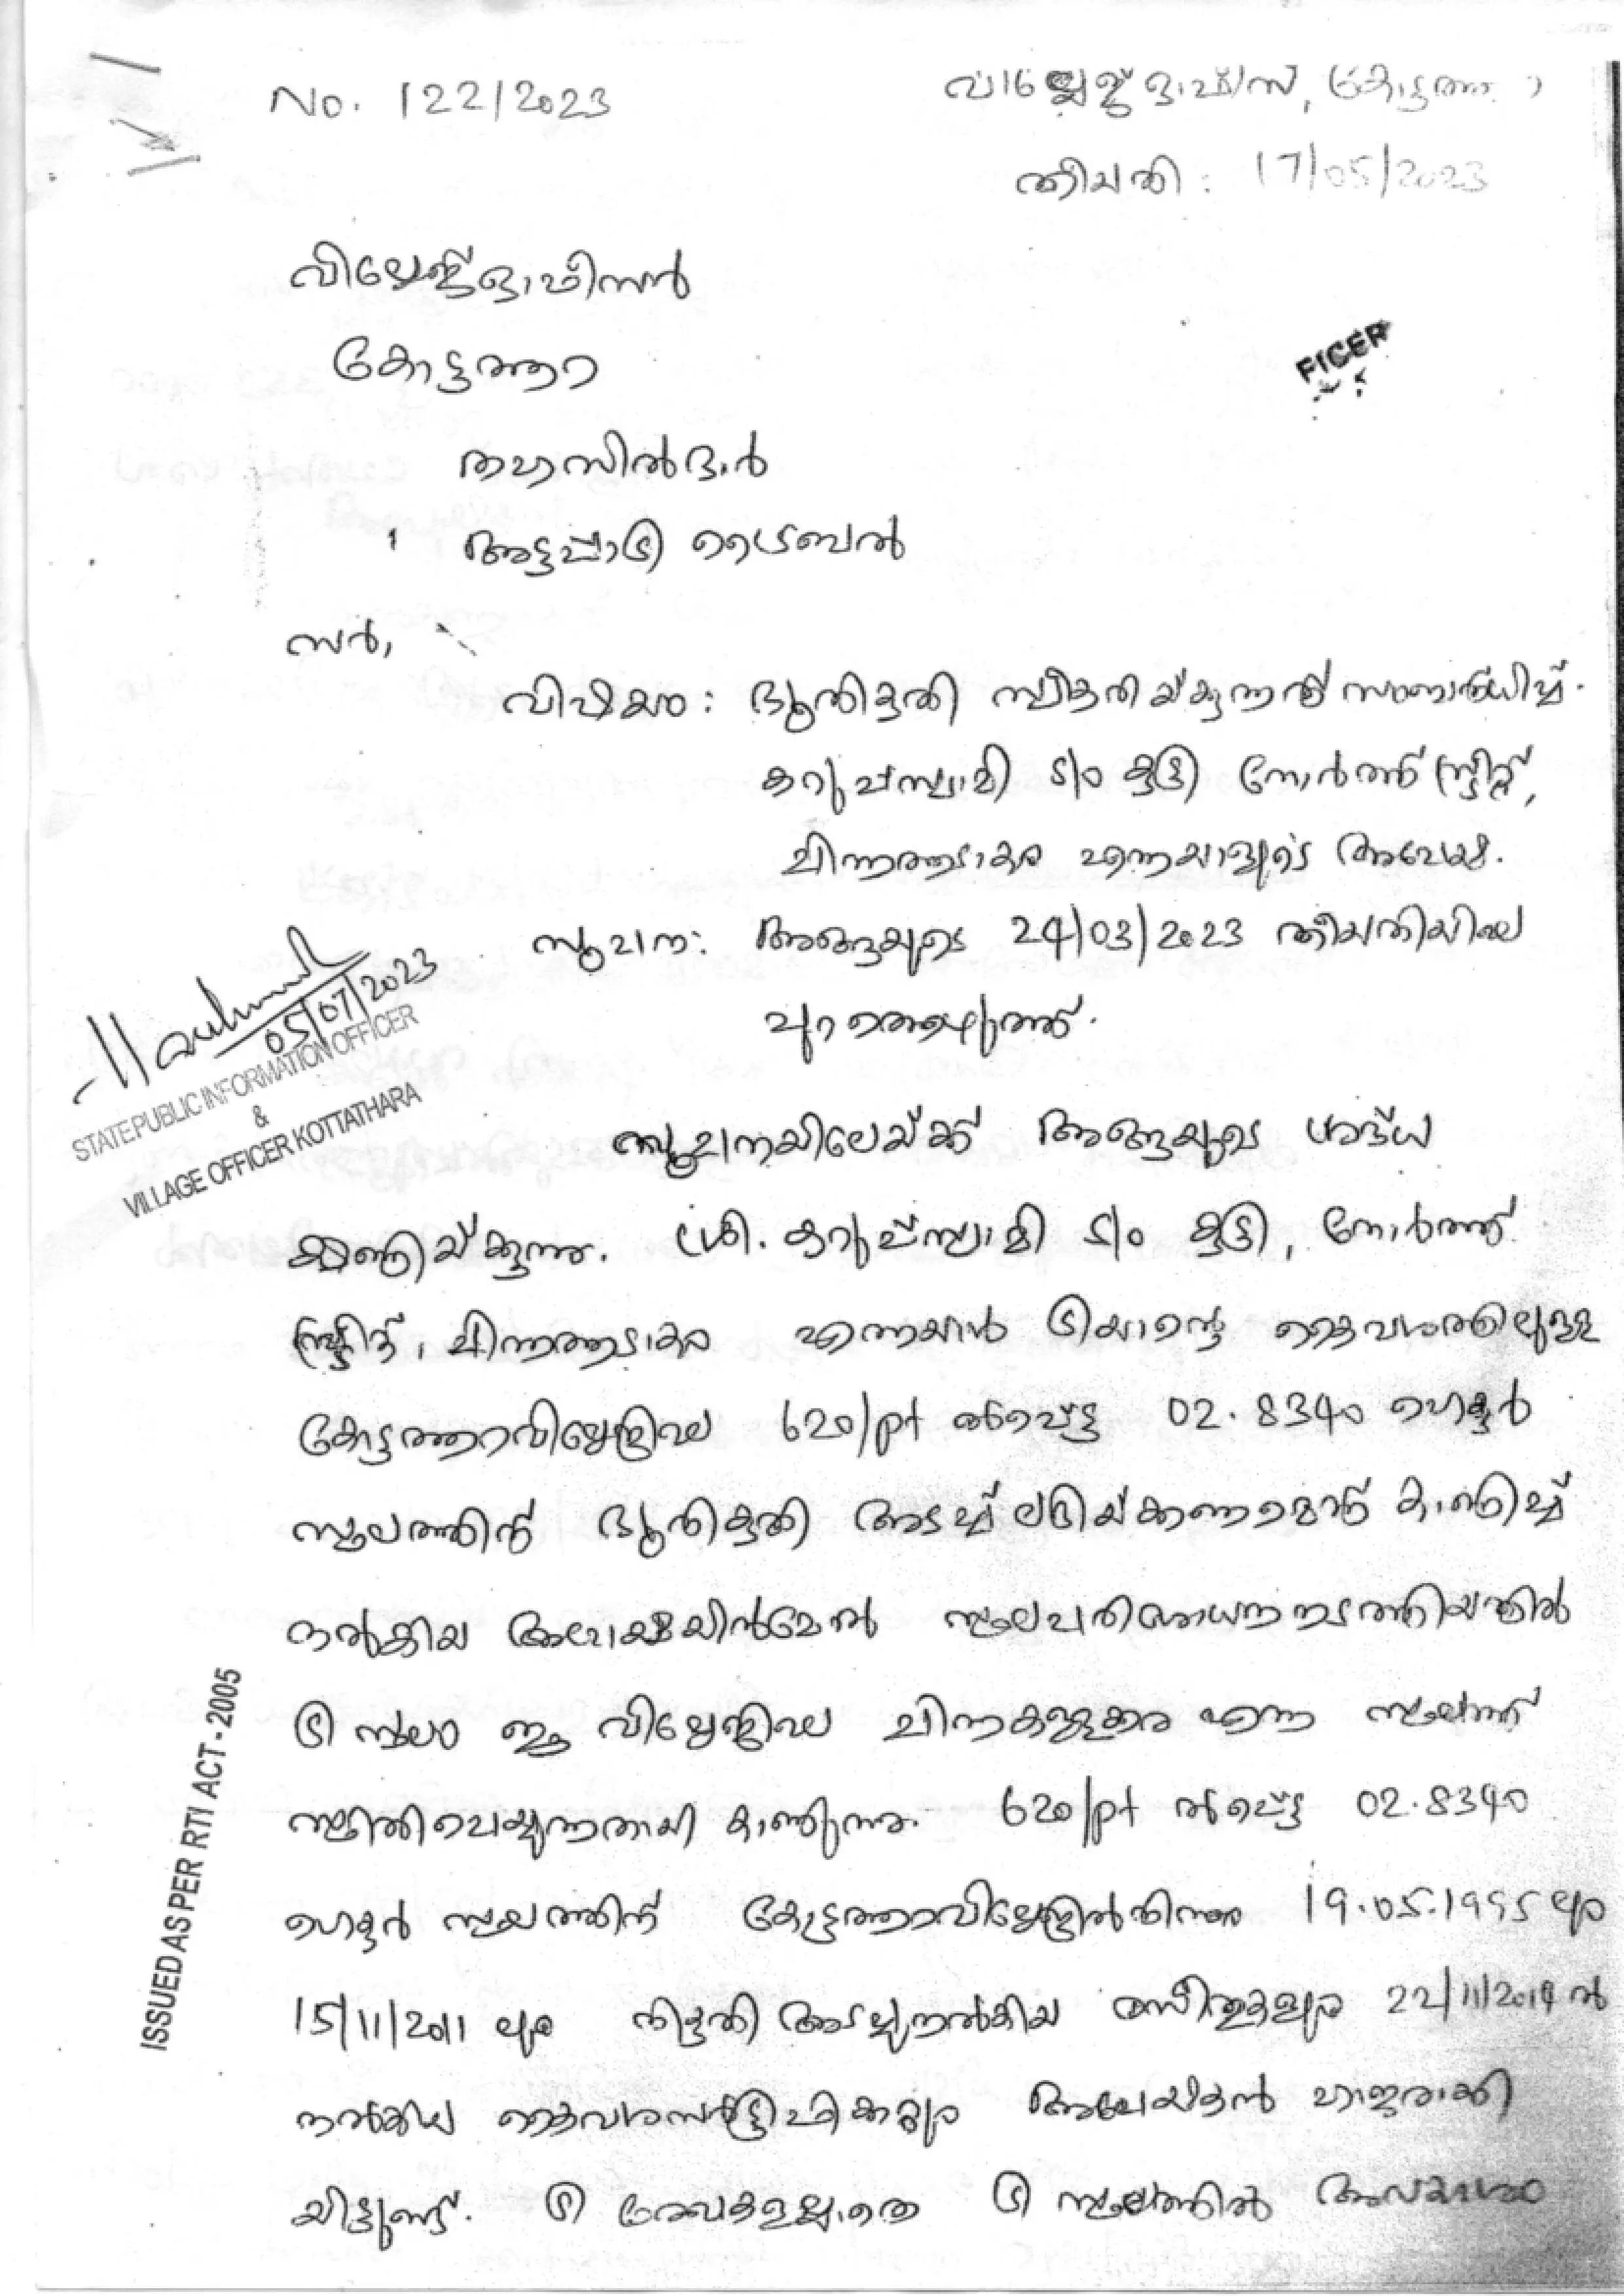 No. 122/2023
വില്ലേജ് ഓഫീസ്, കോട്ടത്തറ
തീയതി: 17/05/2023
വില്ലേജ് ഓഫീസർ
കോട്ടത്തറ
FICER
തഹസിൽദാർ
അട്ടപ്പാടി ട്രൈബൽ
സർ,
വിഷയം: ഭൂനികുതി സ്വീകരിയ്ക്കുന്നത് സംബന്ധിച്ച്.
കറുപ്പസ്വാമി S/o കുട്ടി നോർത്ത് സ്ട്രീറ്റ്,
എന്നയാളുടെ അപേക്ഷ.
സൂചന: അങ്ങയുടെ 24/03/2023 തീയതിയിലെ
പുറത്തെഴുത്ത്.
05/07/2023
STATE PUBLIC INFORMATION OFFICER
&
VILLAGE OFFICER KOTTATHARA
സൂചനയിലേയ്ക്ക് അങ്ങയുടെ ശ്രദ്ധ
ക്ഷണിയ്ക്കുന്നു. ശ്രീ. കറുപ്പസ്വാമി S/o കുട്ടി, നോർത്ത്
സ്ട്രീറ്റ്, എന്നയാൾ ടിയാന്റെ കൈവശത്തിലുള്ള
കോട്ടത്തറ വില്ലേജിലെ 620/pt ൽപ്പെട്ട 02.8340 ഹെക്ടർ
സ്ഥലത്തിന് ഭൂനികുതി അടച്ച് ലഭിയ്ക്കണമെന്ന് കാണിച്ച്
നൽകിയ അപേക്ഷയിൻമേൽ സ്ഥലപരിശോധന നടത്തിയതിൽ
ടി സ്ഥലം ഈ വില്ലേജിലെ എന്ന സ്ഥലത്ത്
സ്ഥിതിചെയ്യുന്നതായി കാണുന്നു. 620/pt ൽപ്പെട്ട 02.8340
ഹെക്ടർ സ്ഥലത്തിന് കോട്ടത്തറ വില്ലേജിൽ നിന്നും 19.05.1995 ലും
15/11/2011 ലും നികുതി അടച്ചു നൽകിയ രസീതുകളും 22/11/2019 ൽ
നൽകിയ കൈവശസർട്ടിഫിക്കറ്റും അപേക്ഷകൻ ഹാജരാക്കി
യിട്ടുണ്ട്. ടി രേഖകളല്ലാതെ ടി സ്ഥലത്തിൽ അവകാശം
ISSUED AS PER RTI ACT - 2005